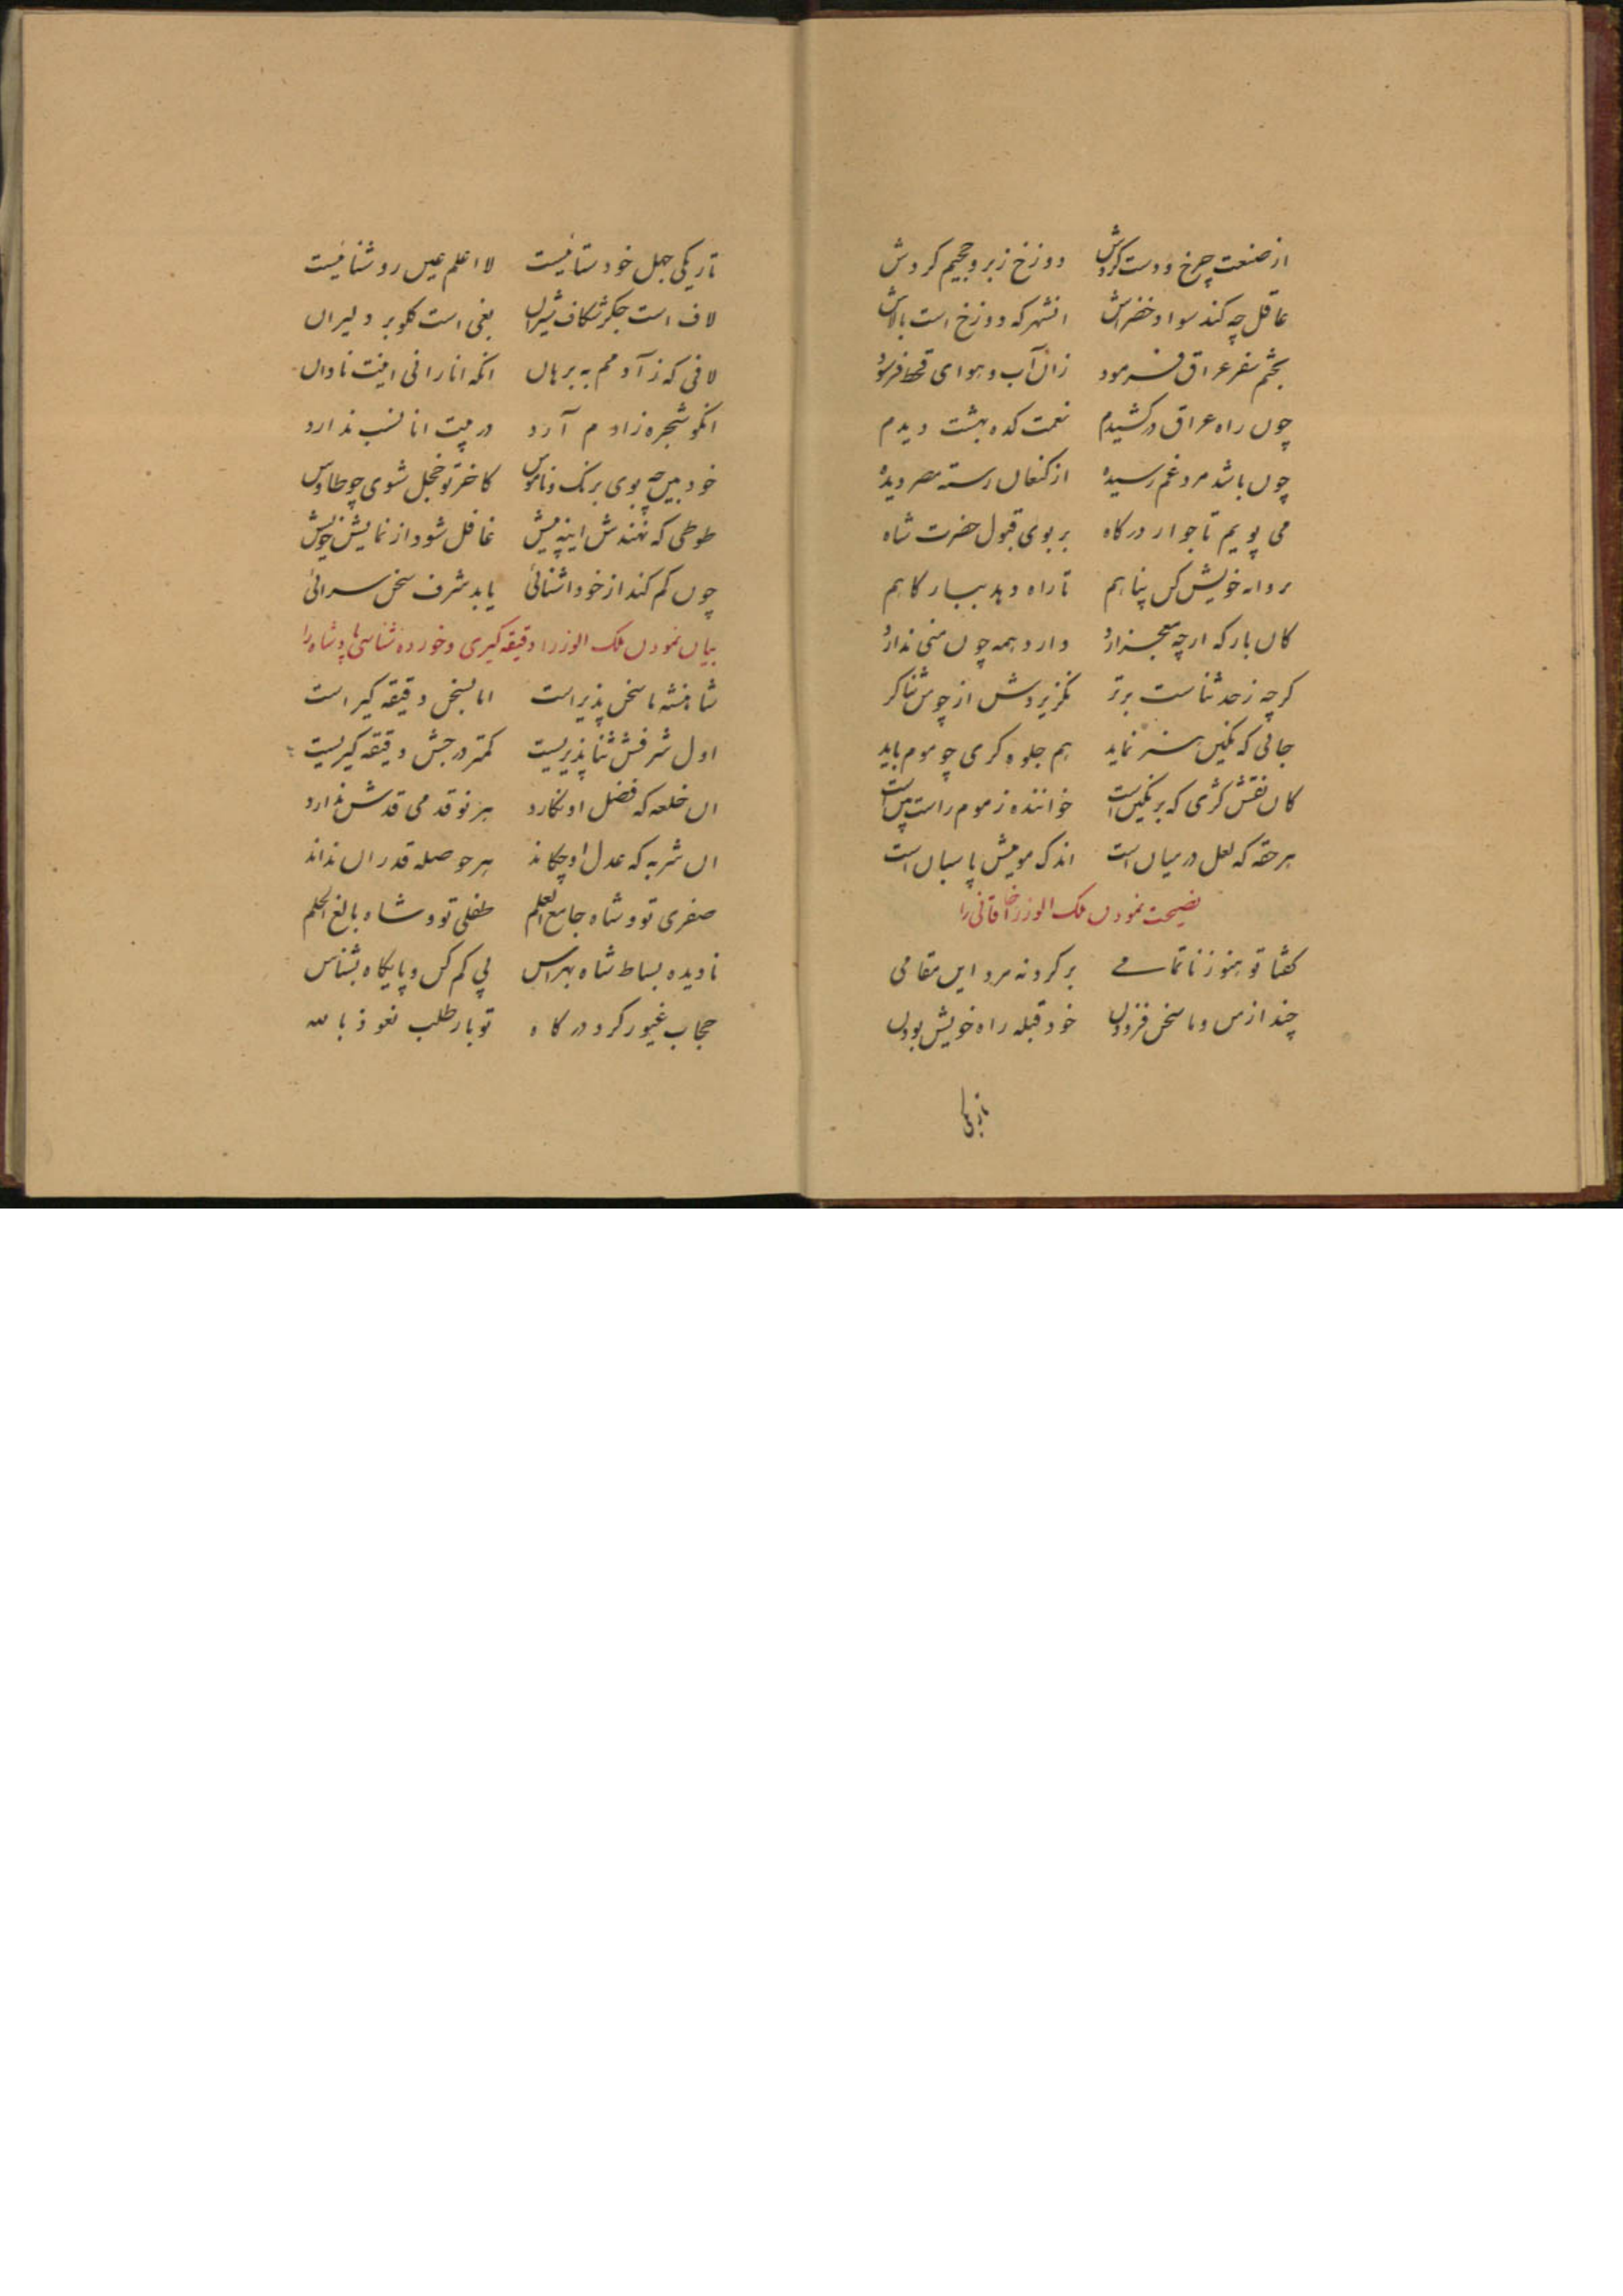 از صنعت چرخ و دست کردش دوزخ زبر و جحیم کردش
عاقل چه کند سواد خضراش انشهر که دوزخ است بالاش
بختم سفر عراق فرمود زان آب و هوای قحط فرسود
چون راه عراق درکشیدم نعمت کده بهشت دیدم
چون باشد مرد غم رسیده از کنعان رسته مصر دیده
می پویم تا جوار درکاه بر بوی قبول حضرت شاه
بروانه خویش کن پناهم تا راه دهد ببارکاهم
کان بارکه ارچه سجزارد دارد همه چون منی ندارد
کرچه زحد ثناست برتر نکزیردش از چو من ثناکر
جائی که نکین هنر نماید هم جلوه کری چو موم باید
کان نقش کژی که بر نکین است خواننده ز موم راست بین است
هر حقه که لعل در میان است اندک مویش پاسبان است
نصیحت نمودن ملک الوزرا خاقانی را
کفتا تو هنوز ناتمامی برکرد نه مرد این مقامی
چند از من و ما سخن فزودن خود قبله راه خویش بودن
تاریکی
تاریکی جهل خودستائیست لا اعلم عین روشنائیست
لاف است جکر شکاف شیران بغی است کلوبر دلیران
لافی که ز آدمم به برهان انکه انا رانی اینت نادان
انکو شجره ز ادم آرد در بیت انا نسب ندارد
خود بین چه بوی برنک و ناموس کاخر تو خجل شوی چو طاوس
طوطی که نهندش اینه پیش غافل شود از نمایش خویش
چون کم کند از خود اشنائی یابد شرف سخن سرائی
بیان نمودن ملک الوزرا دقیقه کیری و خورده شناسی پادشاه را
شاهنشه ما سخن پذیر است اما بسخن دقیقه کیر است
اول شرفش ثنا پذیریست کمتر درجش دقیقه کیریست
ان خلعه که فضل او نکارد هر نو قدمی قدش ندارد
ان شربه که عدل او چکاند هر حوصله قدر ان نداند
صفری تو و شاه جامع العلم طفلی تو و شاه بالغ الحلم
نادیده بساط شاه بهراس پی کم کن و پایکاه بشناس
حجاب غیور کرد درکاه تو بار طلب نعوذ بالله